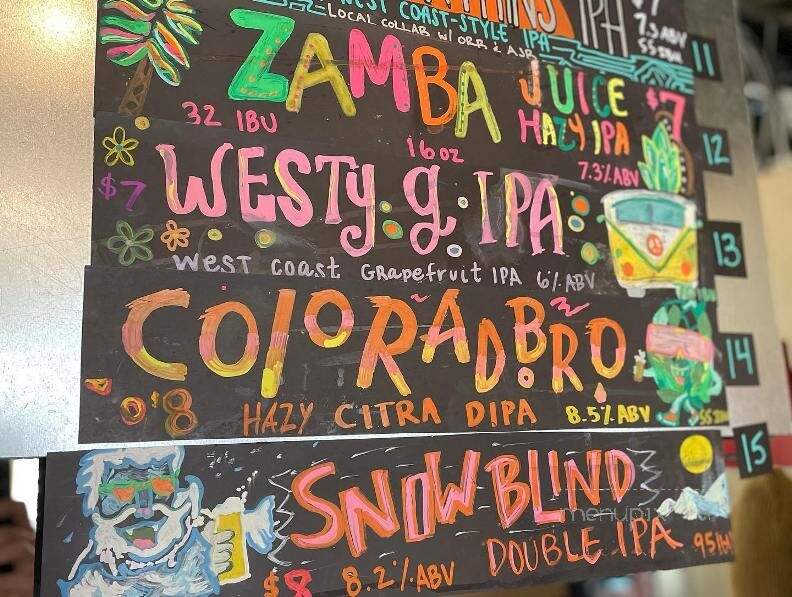 IPA
$7
WEST COAST-STYLE IPA
LOCAL COLLAB W/ ORB & AJR
7.5 ABV
11
ZAMBA JUICE
HAZY IPA
$7
32 IBU
16oz
7.3% ABV
12
$7
WESTY G. IPA
WEST COAST GRAPEFRUIT IPA 6% ABV
13
COLORADBRO
$8
HAZY CITRA DIPA 8.5% ABV
14
15
SNOWBLIND
DOUBLE IPA
$8 8.2% ABV
menupix